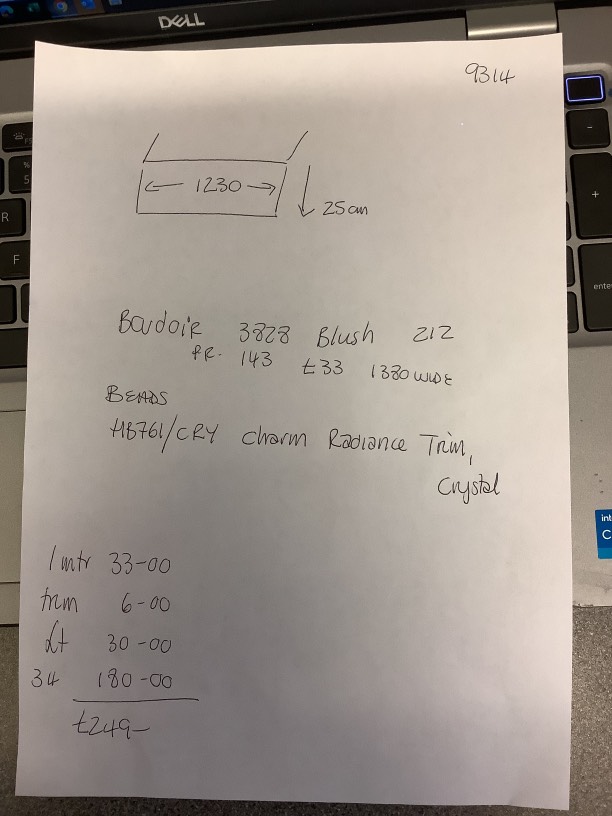 DELL
9314
1230
25cm
Boudoir 3828 Blush 212
PR. 143 £33 1380 WIDE
BEADS
HB761/CRY Charm Radiance Trim,
Crystal
1 mtr 33-00
trim 6-00
Lt 30-00
34 180-00
£249-
%
5
R
F
-
+
enter
int
C